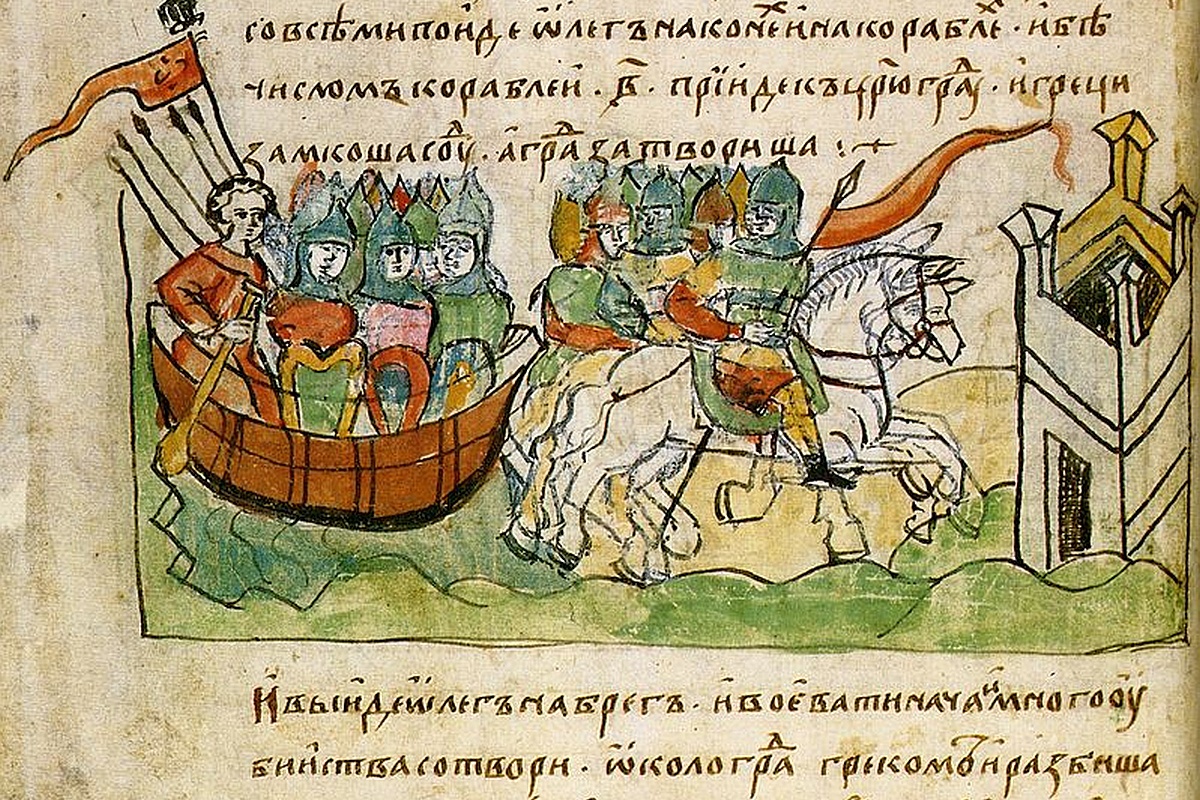 со всѣми поиде ѡлегъ на конeⷯ и на кораблеⷯ · и бѣ
числомъ кораблеи · в҃ · прїиде къ цр҃югрⷣаⷹ · и греци
замкоша соⷣу · а граⷣ затвориша :·
И выиде ѡлегъ на брегъ · и воевати нача и много оу
биства сотвори · ѡколо граⷣ грекомъ и разбиша